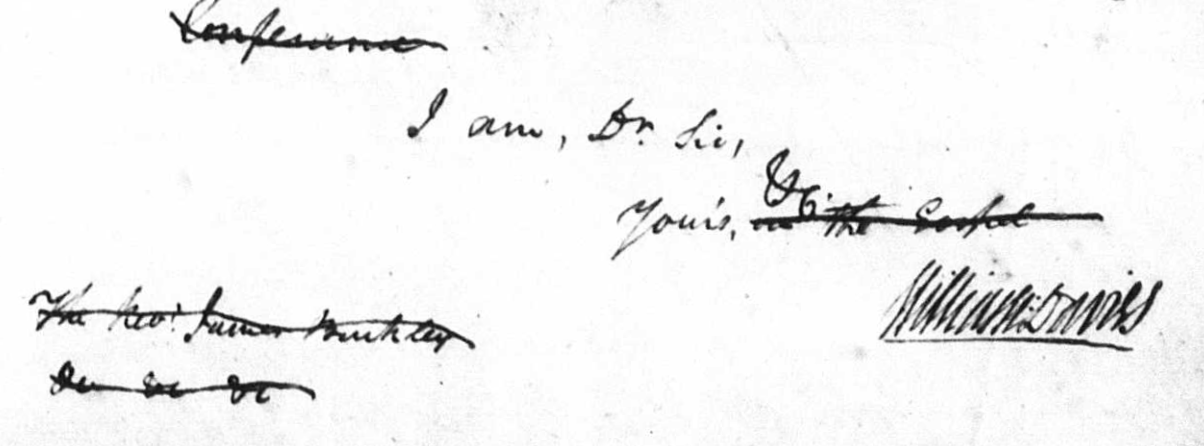 Conference
I am, Dr. Sir,
Your's, &c. in the Gospel
William Davies
The Revd. James Buckley
&c &c &c